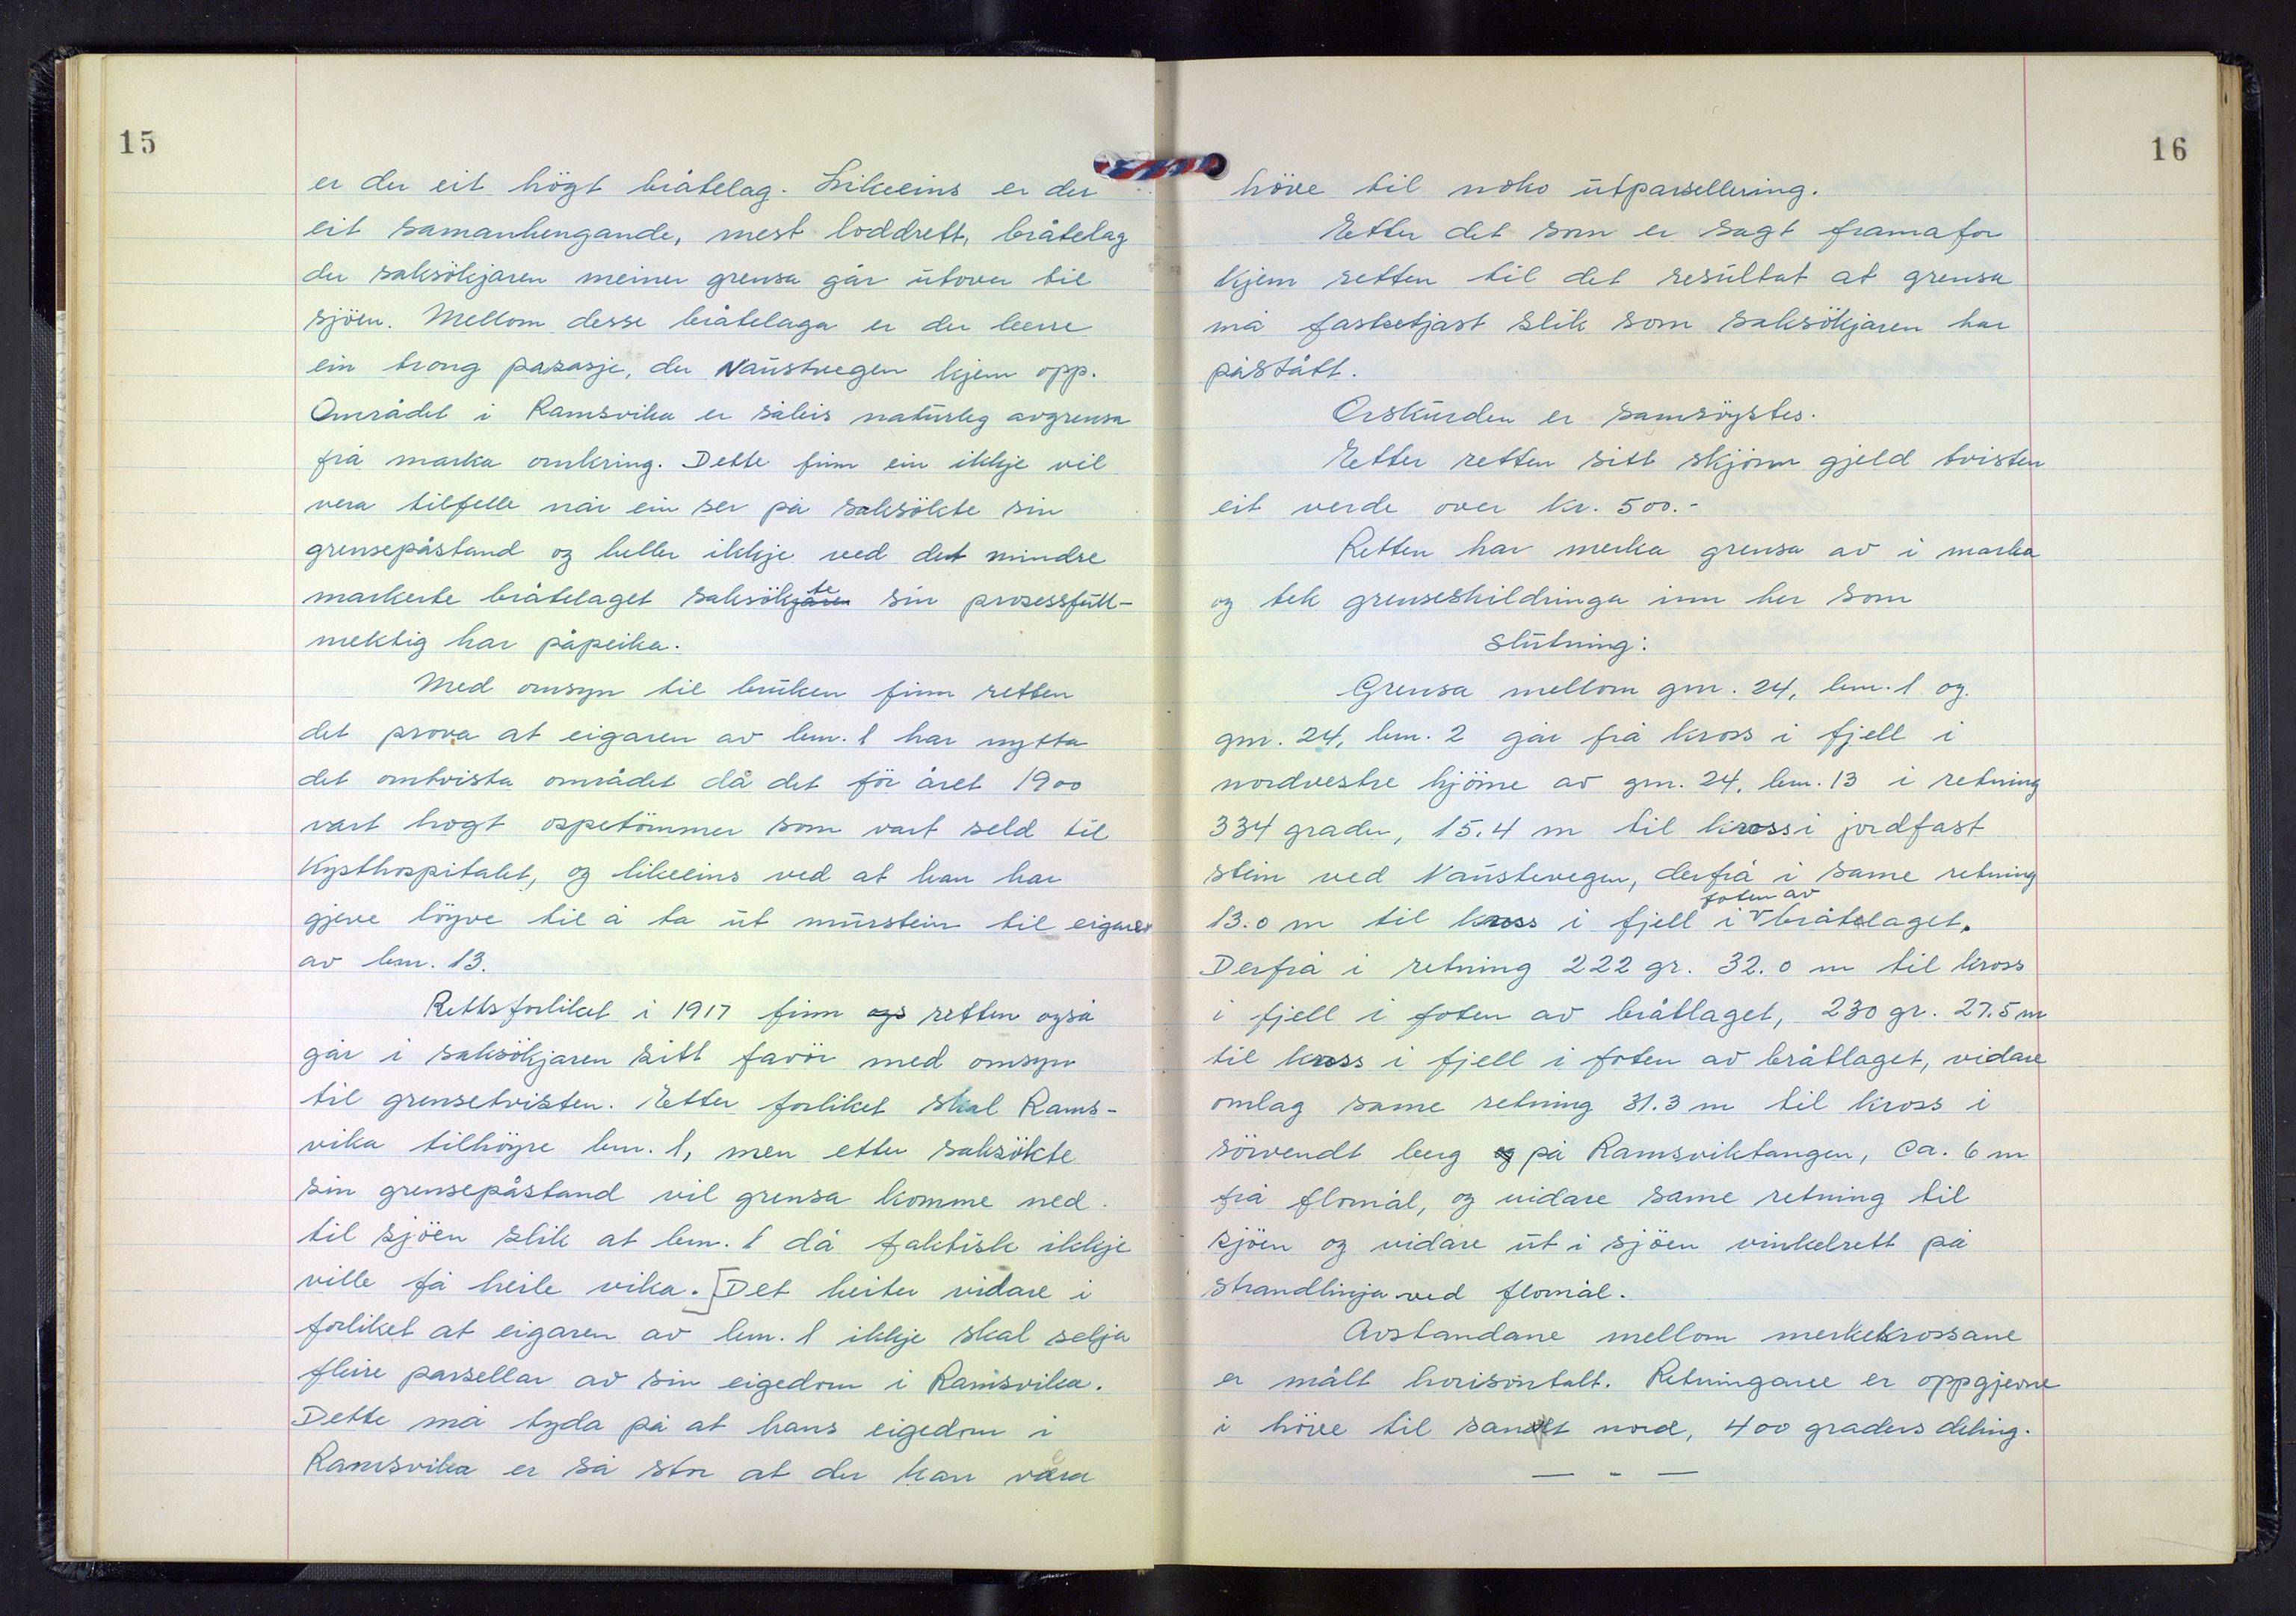 15
er der eit högt bråtelag. Likeeins er der
eit samanhengande, mest loddrett, bråtelag
der saksökjaren meiner grensa går utover til
sjöen. Mellom desse bråtelaga er der berre
ein trong passasje, der Naustvegen kjem opp.
Området i Ramsvika er såleis naturleg avgrensa
frå marka omkring. Dette finn ein ikkje vil
vera tilfelle når ein ser på saksökte sin
grensepåstand og heller ikkje ved det mindre
markerte bråtelaget saksökte sin prosessfull-
mektig har påpeika.
Med omsyn til bruken finn retten
det prova at eigaren av bnr. 1 har nytta
det omtvista området då det för året 1900
vart hogt ospetömmer som vart seld til
Kysthospitalet, og likeeins ved at han har
gjeve löyve til å ta ut murstein til eigaren
av bnr. 13.
Rettsforliket i 1917 finn ogs retten også
går i saksökjaren sitt favör med omsyn
til grensetvisten. Etter forliket skal Rams-
vika tilhöyre bnr. 1, men etter saksökte
sin grensepåstand vil grensa komme ned
til sjöen slik at bnr. 1 då faktisk ikkje
ville få heile vika. [Det heiter vidare i
forliket at eigaren av bnr. 1 ikkje skal selja
fleire parsellar av sin eigedom i Ramsvika.
Dette må tyda på at hans eigedom i
Ramsvika er så stor at der kan vera
16
höve til noko utparsellering.
Etter det som er sagt framafor
kjem retten til det resultat at grensa
må fastsetjast slik som saksökjaren har
påstått.
Orskurden er samröystes.
Etter retten sitt skjönn gjeld tvisten
eit verde over kr. 500.-
Retten har merka grensa av i marka
og tek grenseskildringa inn her som
slutning:
Grensa mellom gnr. 24, bnr. 1 og
gnr. 24, bnr. 2 går frå kross i fjell i
nordvestre hjörne av gnr. 24, bnr. 13 i retning
334 grader, 15.4 m til kross i jordfast
stein ved Naustevegen, derfrå i same retning
13.0 m til kross i fjell i foten av bråtelaget.
Derfrå i retning 222 gr. 32.0 m til kross
i fjell i foten av bråtlaget, 230 gr. 27.5 m
til kross i fjell i foten av bråtlaget, vidare
omlag same retning 31.3 m til kross i
sörvendt berg og på Ramsviktangen, ca. 6 m
frå flomål, og vidare same retning til
sjöen og vidare ut i sjöen vinkelrett på
strandlinja ved flomål.
Avstandane mellom merkekrossane
er målt horisontalt. Retningane er oppgjevne
i höve til sant nord, 400 graders deling.
— - —